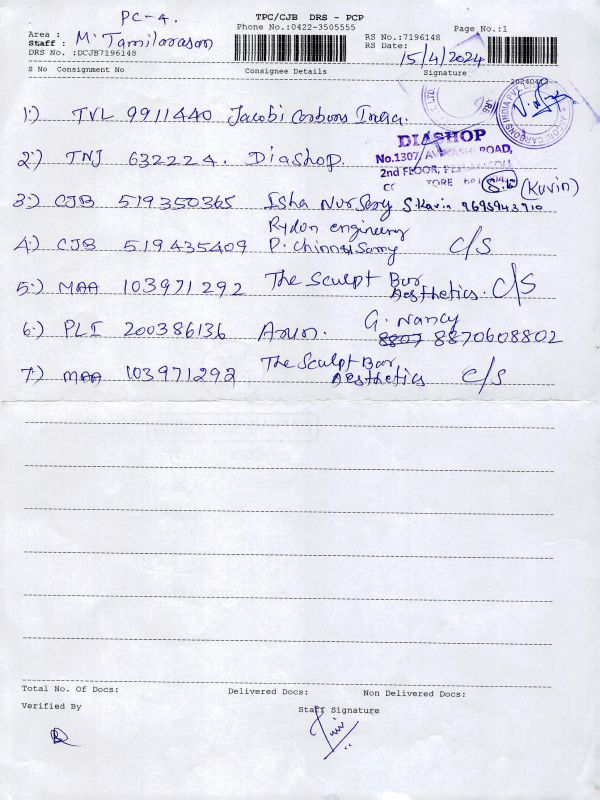 PC-4.
TPC/CJB DRS - PCP
Phone No.:0422-3505555
Page No.:1
Area :
Staff : M. Tamilarasan
RS No.:7196148
DRS No. :DCJB7196148
RS Date: 15/4/2024
S No Consignment No Consignee Details Signature
1.) TVL 9911440 Jacobi Carbons India.
2.) TNJ 632224. Diashop.
DIASHOP
No.1307/ ROAD,
2nd FLOOR,
3.) CJB 519350365 Isha Nursery S.Kavin 9695943910
(Kavin)
4.) CJB 519435409 Rydon engineering
P. Chinnasamy C/S
5.) MAA 103971292 The Sculpt Bar
Aesthetics. C/S
6.) PLI 200386136 Arun. G. Nancy
8807 8870608802
7.) MAA 103971292 The Sculpt Bar
Aesthetics C/S
Total No. Of Docs: Delivered Docs: Non Delivered Docs:
Verified By Staff Signature